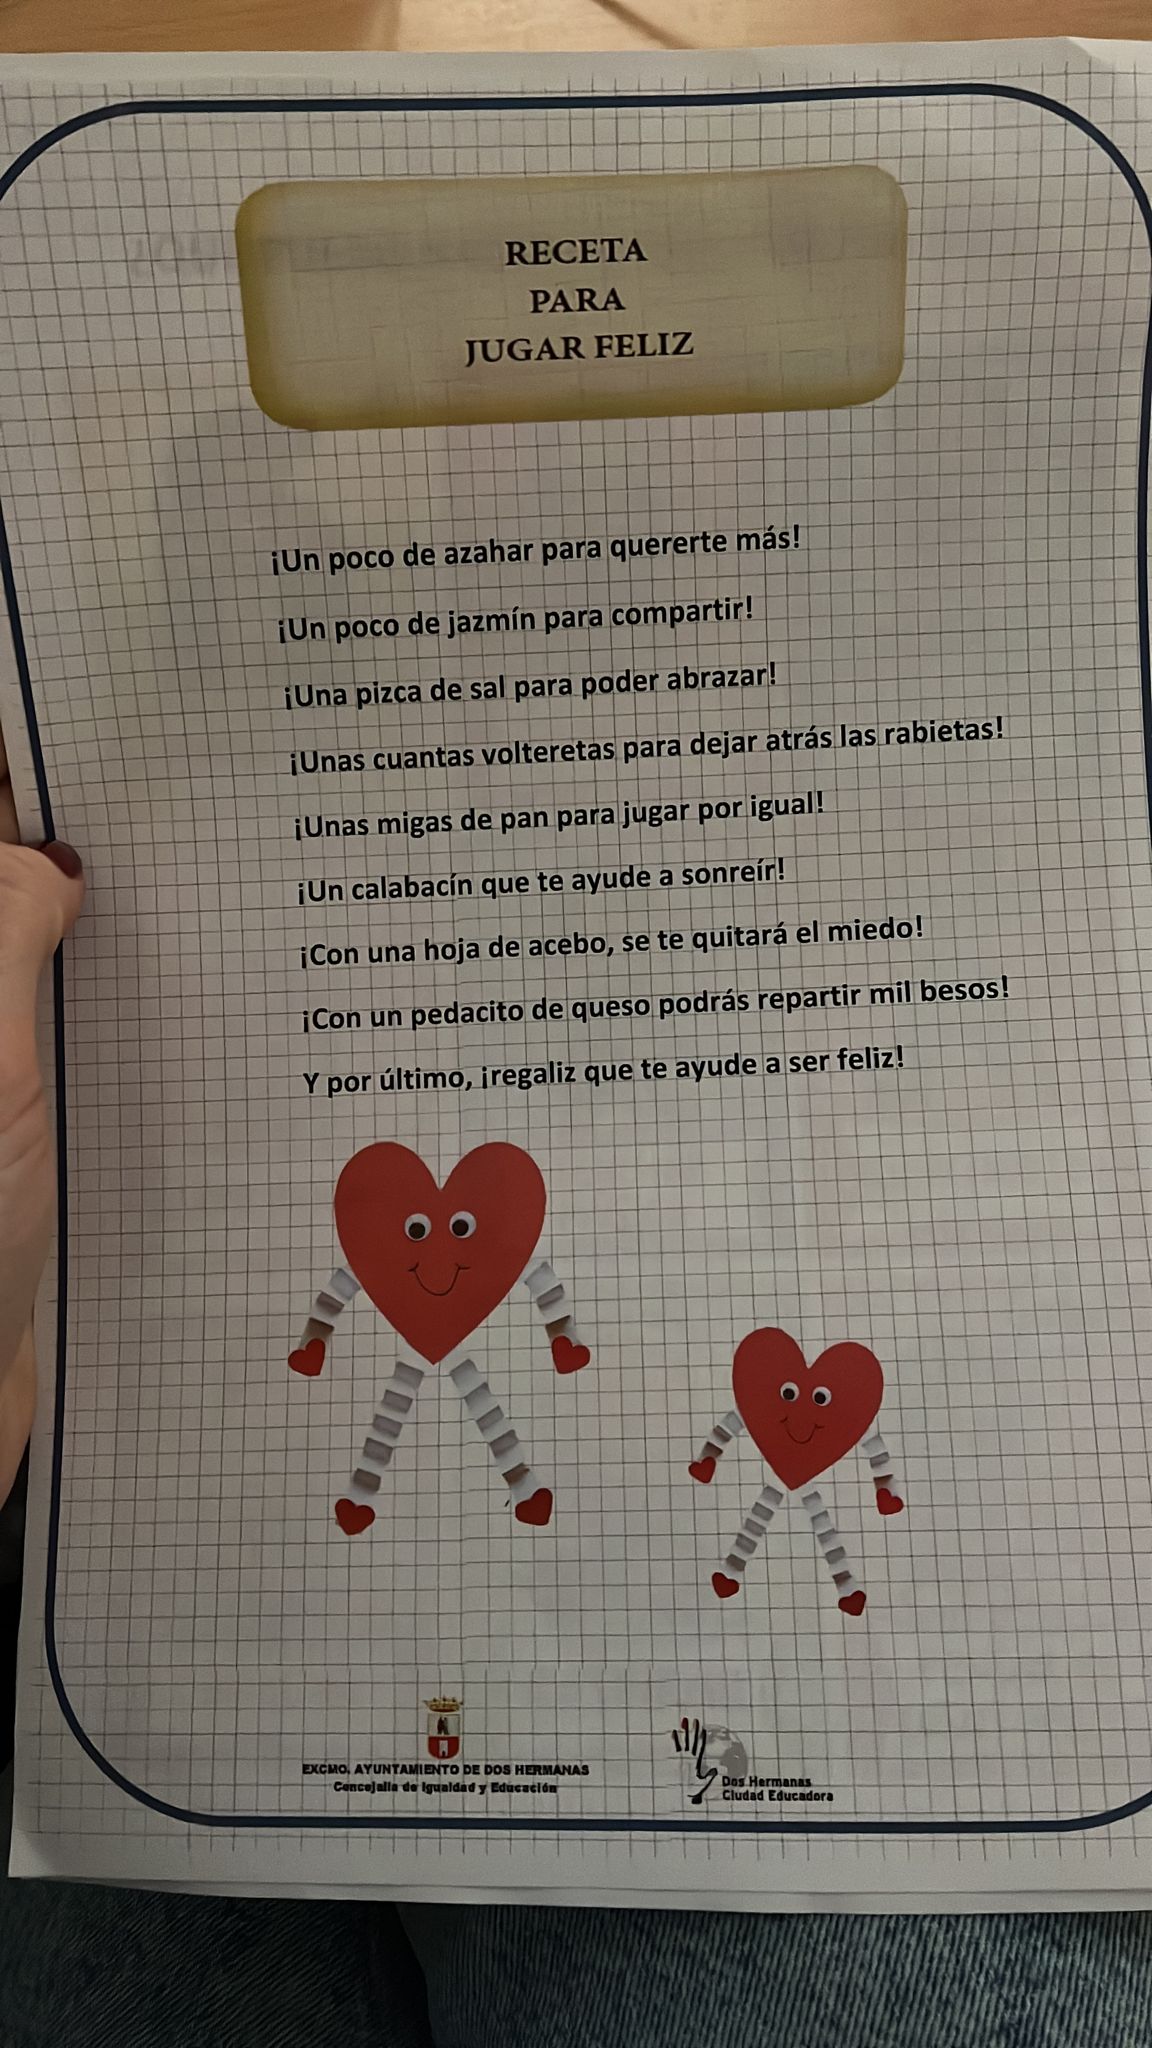 RECETA
PARA
JUGAR FELIZ
¡Un poco de azahar para quererte más!
¡Un poco de jazmín para compartir!
¡Una pizca de sal para poder abrazar!
¡Unas cuantas volteretas para dejar atrás las rabietas!
¡Unas migas de pan para jugar por igual!
¡Un calabacín que te ayude a sonreír!
¡Con una hoja de acebo, se te quitará el miedo!
¡Con un pedacito de queso podrás repartir mil besos!
Y por último, ¡regaliz que te ayude a ser feliz!
EXCMO. AYUNTAMIENTO DE DOS HERMANAS
Concejalía de Igualdad y Educación
Dos Hermanas
Ciudad Educadora